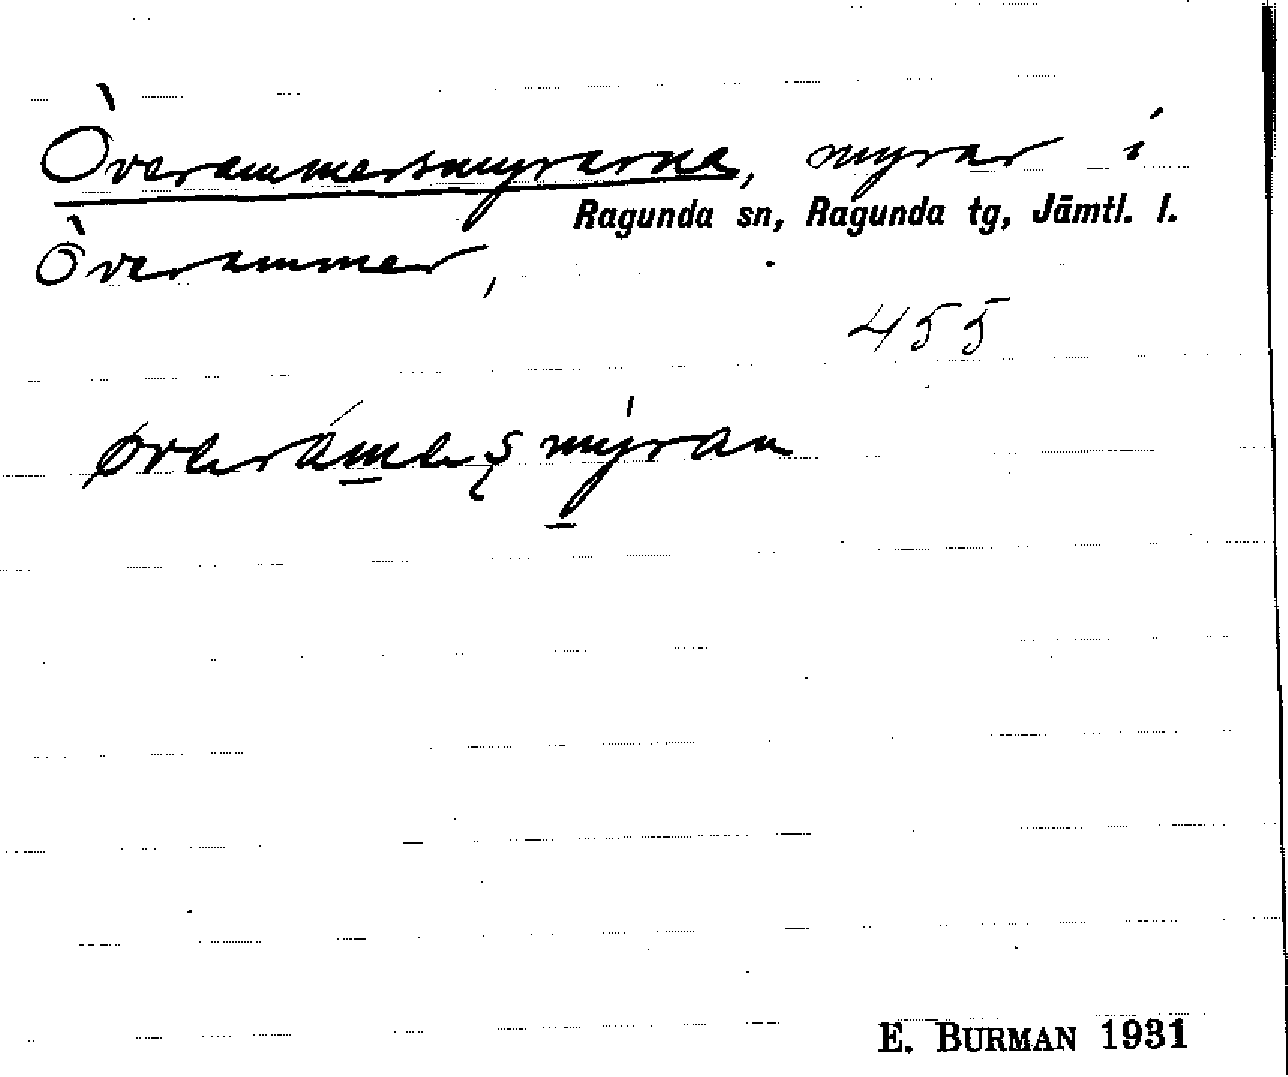 Överammersmyrarna, myrar i
Ragunda sn, Ragunda tg, Jämtl. l.
Överammer,
455
E. BURMAN 1931